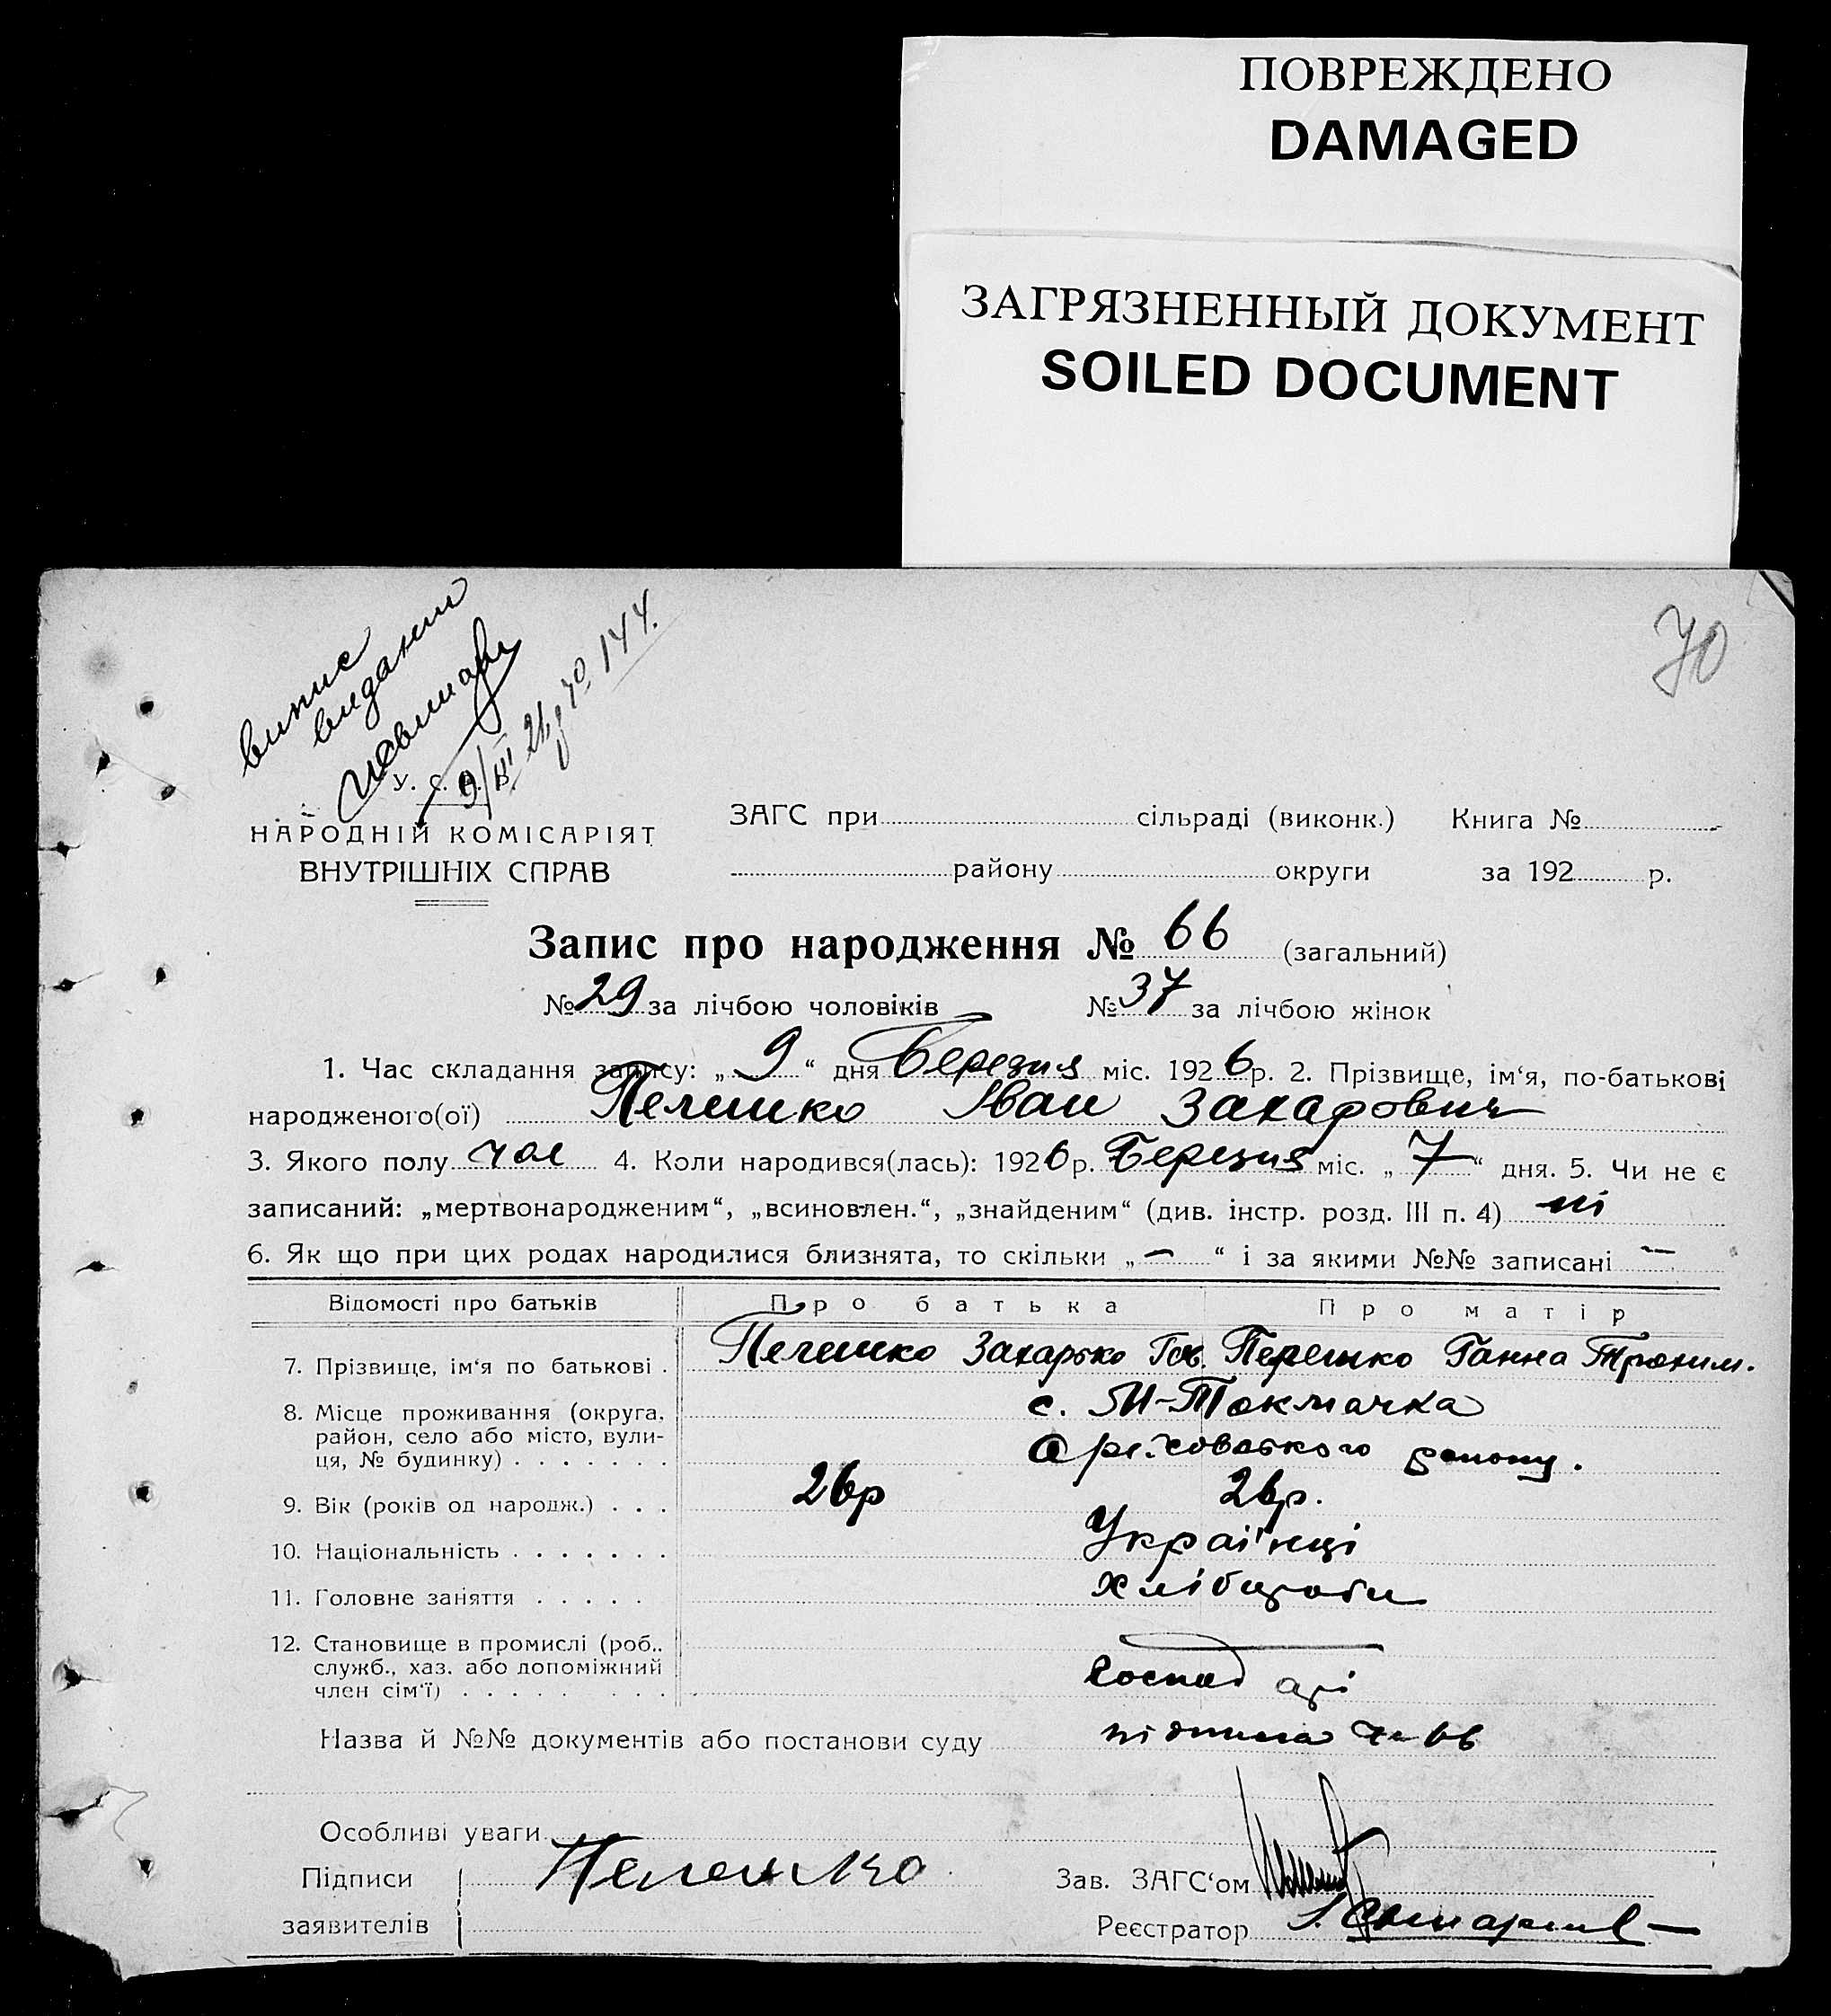 ПОВРЕЖДЕНО
DAMAGED
ЗАГРЯЗНЕННЫЙ ДОКУМЕНТ
SOILED DOCUMENT
70
випис
видании
9/III 26 р № 144.
У. С.
НАРОДНІЙ КОМІСАРІЯТ
ВНУТРІШНІХ СПРАВ
ЗАГС при сільраді (виконк.) Книга №
району округи за 192 р.
Запис про народження № 66 (загальний)
№ 29 за лічбою чоловіків № 37 за лічбою жінок
1. Час складання запису: „ 9 “ дня Березня міс. 192 6 р. 2. Прізвище, ім‘я, по-батькові
народженого(ої) Пелешко Іван Захарович
3. Якого полу чол 4. Коли народився(лась): 192 6 р. Березня міс. „ 7 “ дня. 5. Чи не є
записаний: „мертвонародженим“, „всиновлен.“, „знайденим“ (див. інстр. розд. III п. 4) ні
6. Як що при цих родах народилися близнята, то скільки „ — “ і за якими №№ записані —
Відомості про батьків Про батька Про матір
7. Прізвище, ім‘я по батькові . Пелешко Захарько Пелешко Ганна Трохим.
8. Місце проживання (округа, с. М-Токмачка
район, село або місто, вули-
ця, № будинку) . . . . . . . Оріховського району.
9. Вік (років од народж.) . . . 26р 26р.
10. Національність . . . . . . . Українці
11. Головне заняття . . . . . Хлібороби
12. Становище в промислі (роб.,
служб., хаз. або допоміжний
член сім‘ї) . . . . . . . . . господарі
Назва й №№ документів або постанови суду підписка № 66
Особливі уваги
Підписи Пелешко Зав. ЗАГС‘ом
заявителів Реєстратор